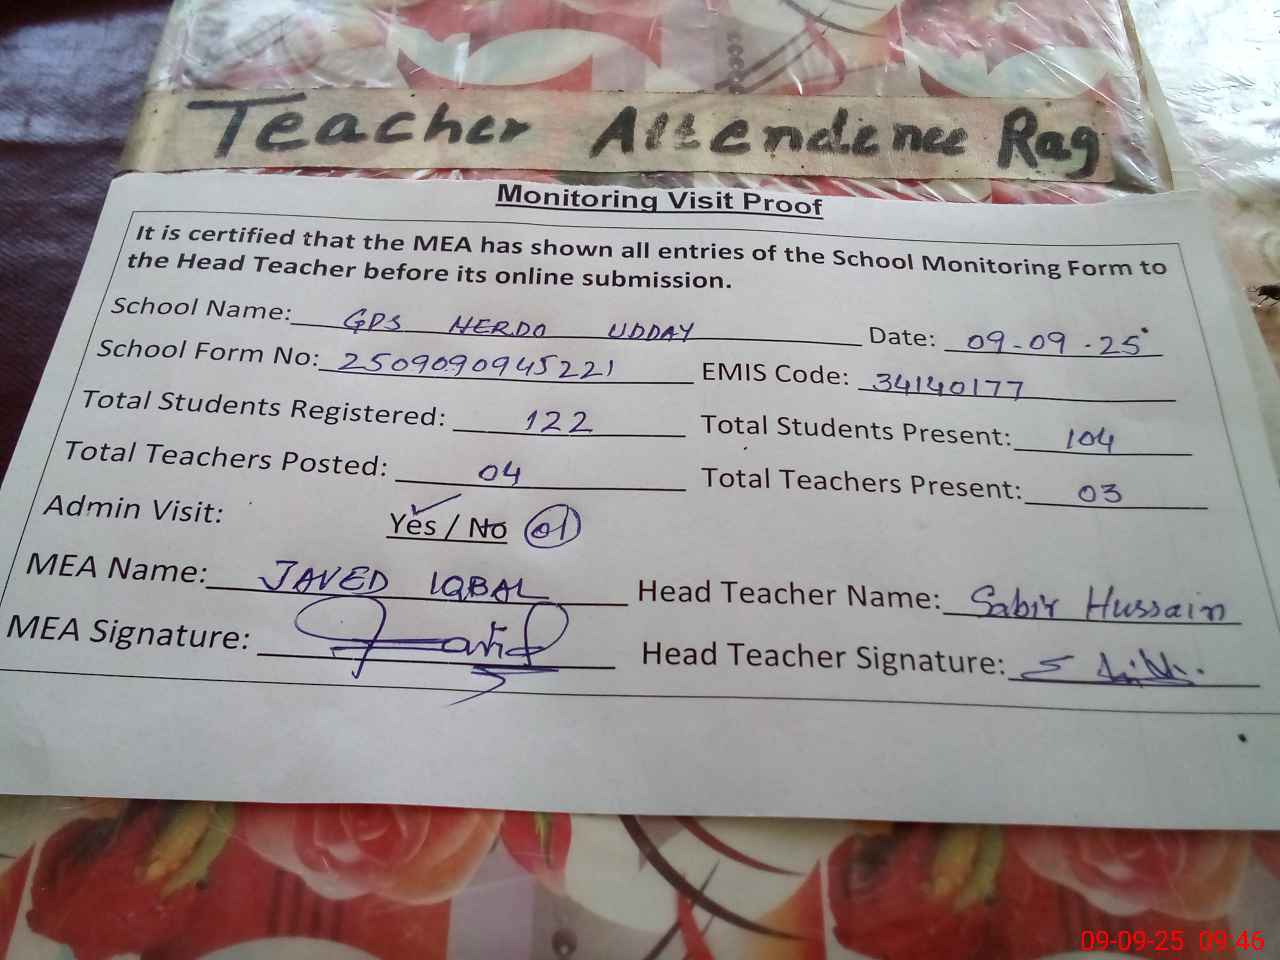 Teacher Attendence Rag
Monitoring Visit Proof
It is certified that the MEA has shown all entries of the School Monitoring Form to
the Head Teacher before its online submission.
School Name: GPS HERDO UDDAY Date: 09-09-25
School Form No: 2509090945221 EMIS Code: 34140177
Total Students Registered: 122 Total Students Present: 104
Total Teachers Posted: 04 Total Teachers Present: 03
Admin Visit: Yes / No 01
MEA Name: JAVED IQBAL Head Teacher Name: Sabir Hussain
MEA Signature: Head Teacher Signature:
09-09-25 09:46